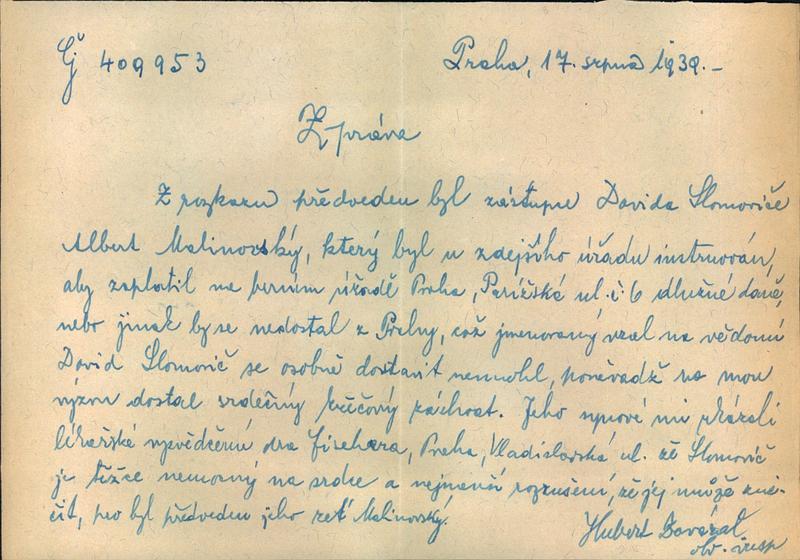 Čj 409953 Praha, 17. srpna 1939.-
Zpráva
Z rozkazu předveden byl zástupce Davida Slomoviče
Albert Malinovský, který byl u zdejšího úřadu instruován,
aby zaplatil na berním úřadě Praha, Pařížská ul. č. 6 dlužné daně,
nebo jinak by se nedostal z Prahy, což jmenovaný vzal na vědomí
David Slomovič se osobně dostavit nemohl, poněvadž na mou
výzvu dostal srdečný křečový záchvat. Jeho synové mi ukázali
lékařské vysvědčení dra Fischera, Praha, Vladislavská ul. že Slomovič
je těžce nemocný na srdce a nejmenší rozrušení, že jej může zni-
čit, pro byl předveden jeho zeť Malinovský.
Hubert
obv. insp